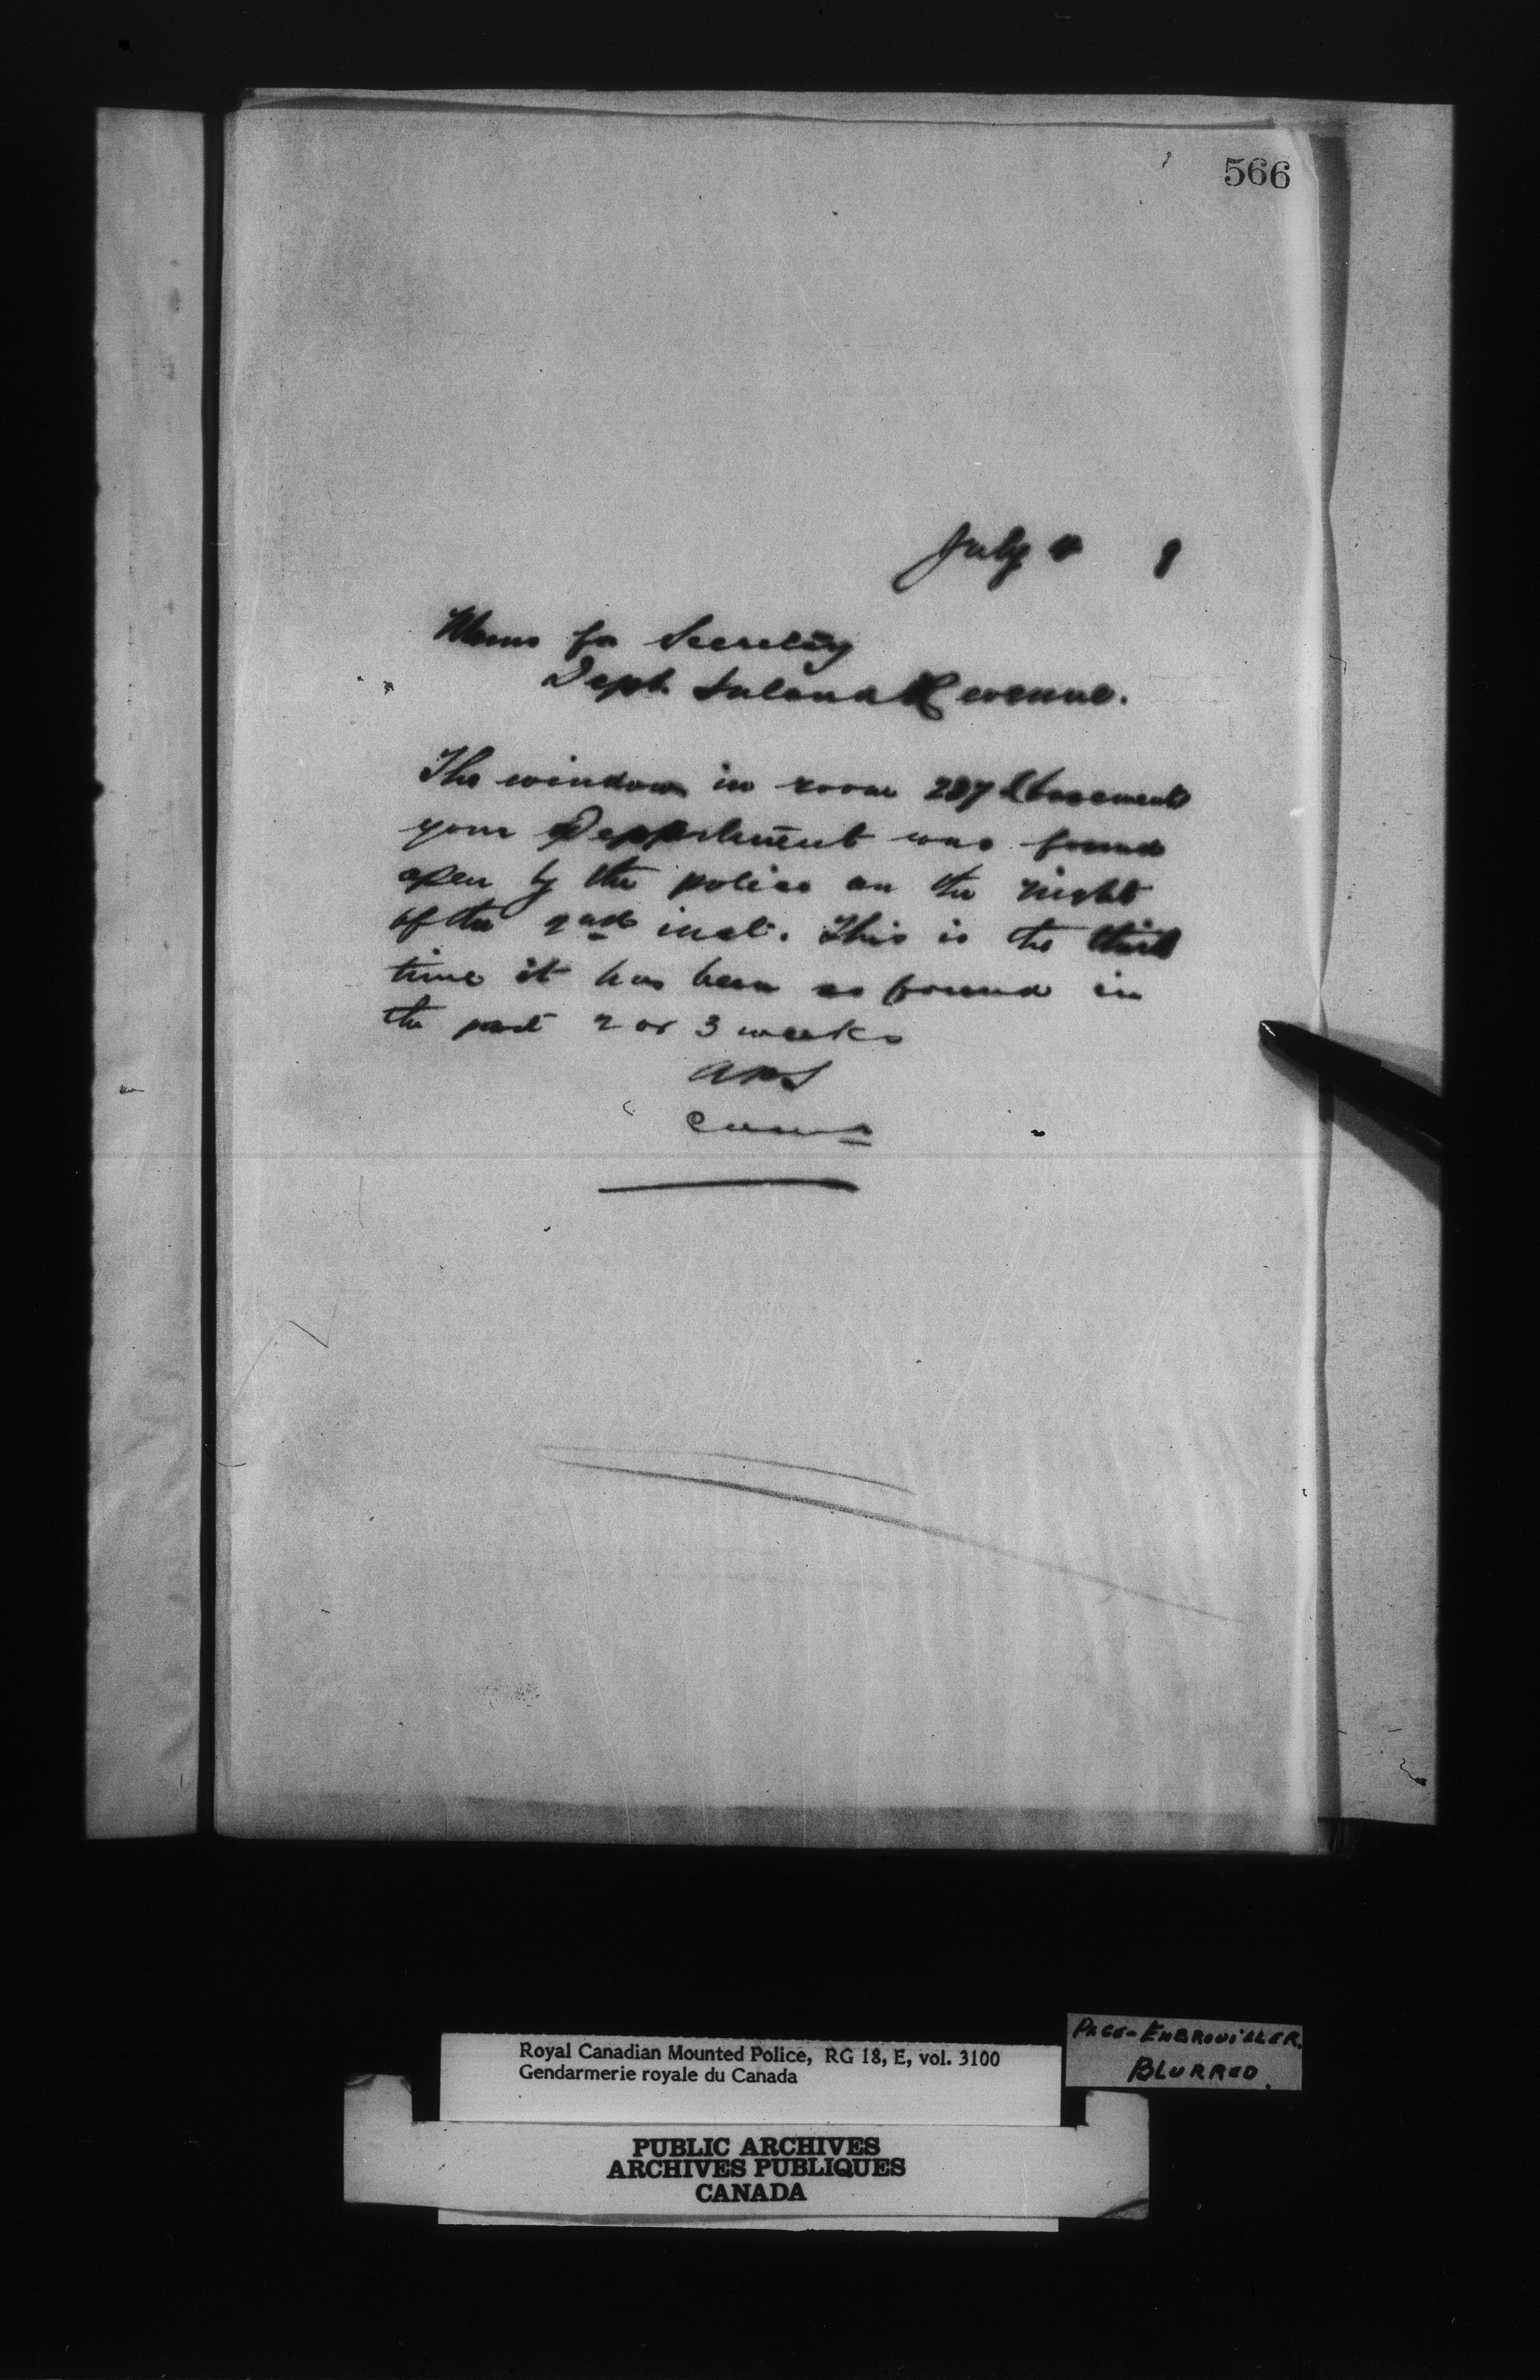 566
July 4 9
Memo for Secretary
Dept Inland Revenue.
The window in room 287 (basement)
your Department was found
open by the police on the night
of the 2nd inst. This is the third
time it has been so found in
the past 2 or 3 weeks
APS
Comr
Royal Canadian Mounted Police, RG 18, E, vol. 3100
Gendarmerie royale du Canada
PAGE-EMBROUILLER.
BLURRED.
PUBLIC ARCHIVES
ARCHIVES PUBLIQUES
CANADA